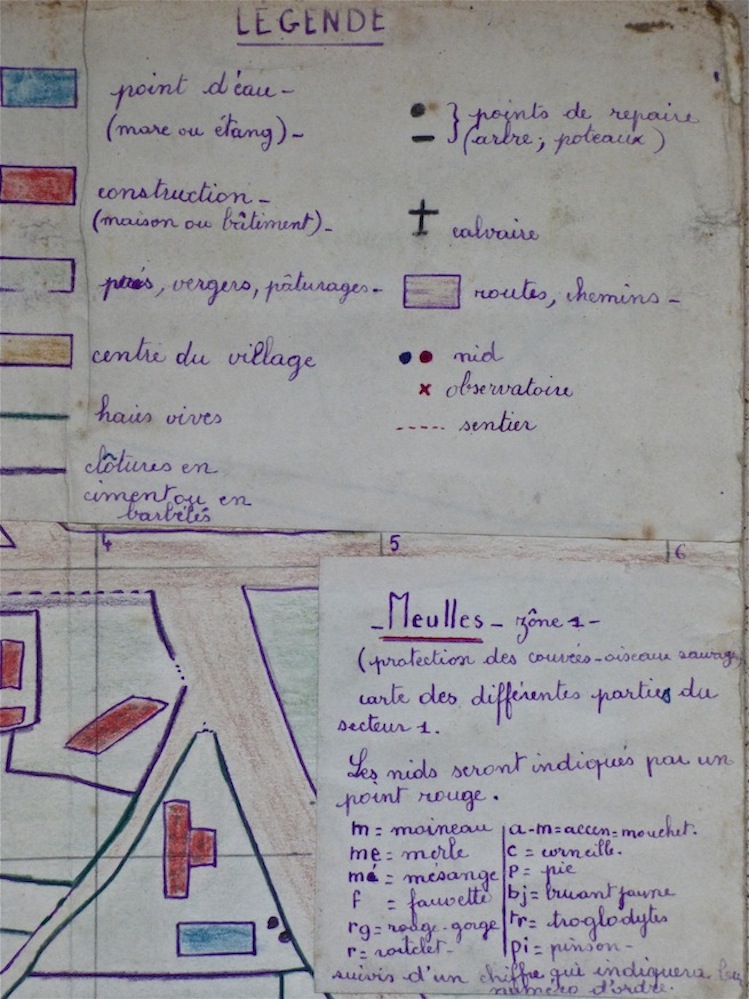 LEGENDE
point d'eau -
(mare ou étang) -
construction -
(maison ou bâtiment) -
prés, vergers, pâturages -
centre du village
haies vives
clôtures en
ciment ou en
barbelés
} points de repaire
(arbre ; poteaux)
calvaire
routes, chemins -
nid
observatoire
sentier
4
5
6
- Meulles - zône 1 -
(protection des couvées - oiseaux sauvages
carte des différentes parties du
secteur 1.
Les nids seront indiqués par un
point rouge.
m = moineau
me = merle
mé = mésange
f = fauvette
rg = rouge-gorge
r = roitelet -
a-m = accen = mouchet.
c = corneille.
p = pie
bj = bruant jaune
tr = troglodytes
pi = pinson -
suivis d'un chiffre qui indiquera leur
numéro d'ordre.